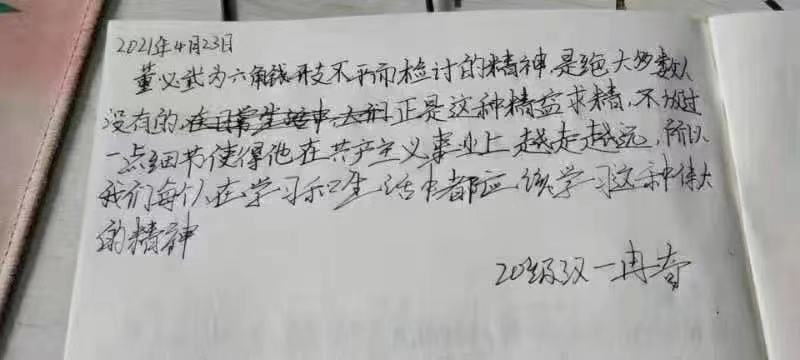 2021年4月23日
董必武为六角钱开支不平而检讨的精神,是绝大多数人
没有的,在日常生活中,正是这种精益求精,不放过
一点细节使得他在共产主义事业上越走越远,所以
我们每个人在学习和生活中都应该学习这种伟大
的精神
20级汉一冉奇